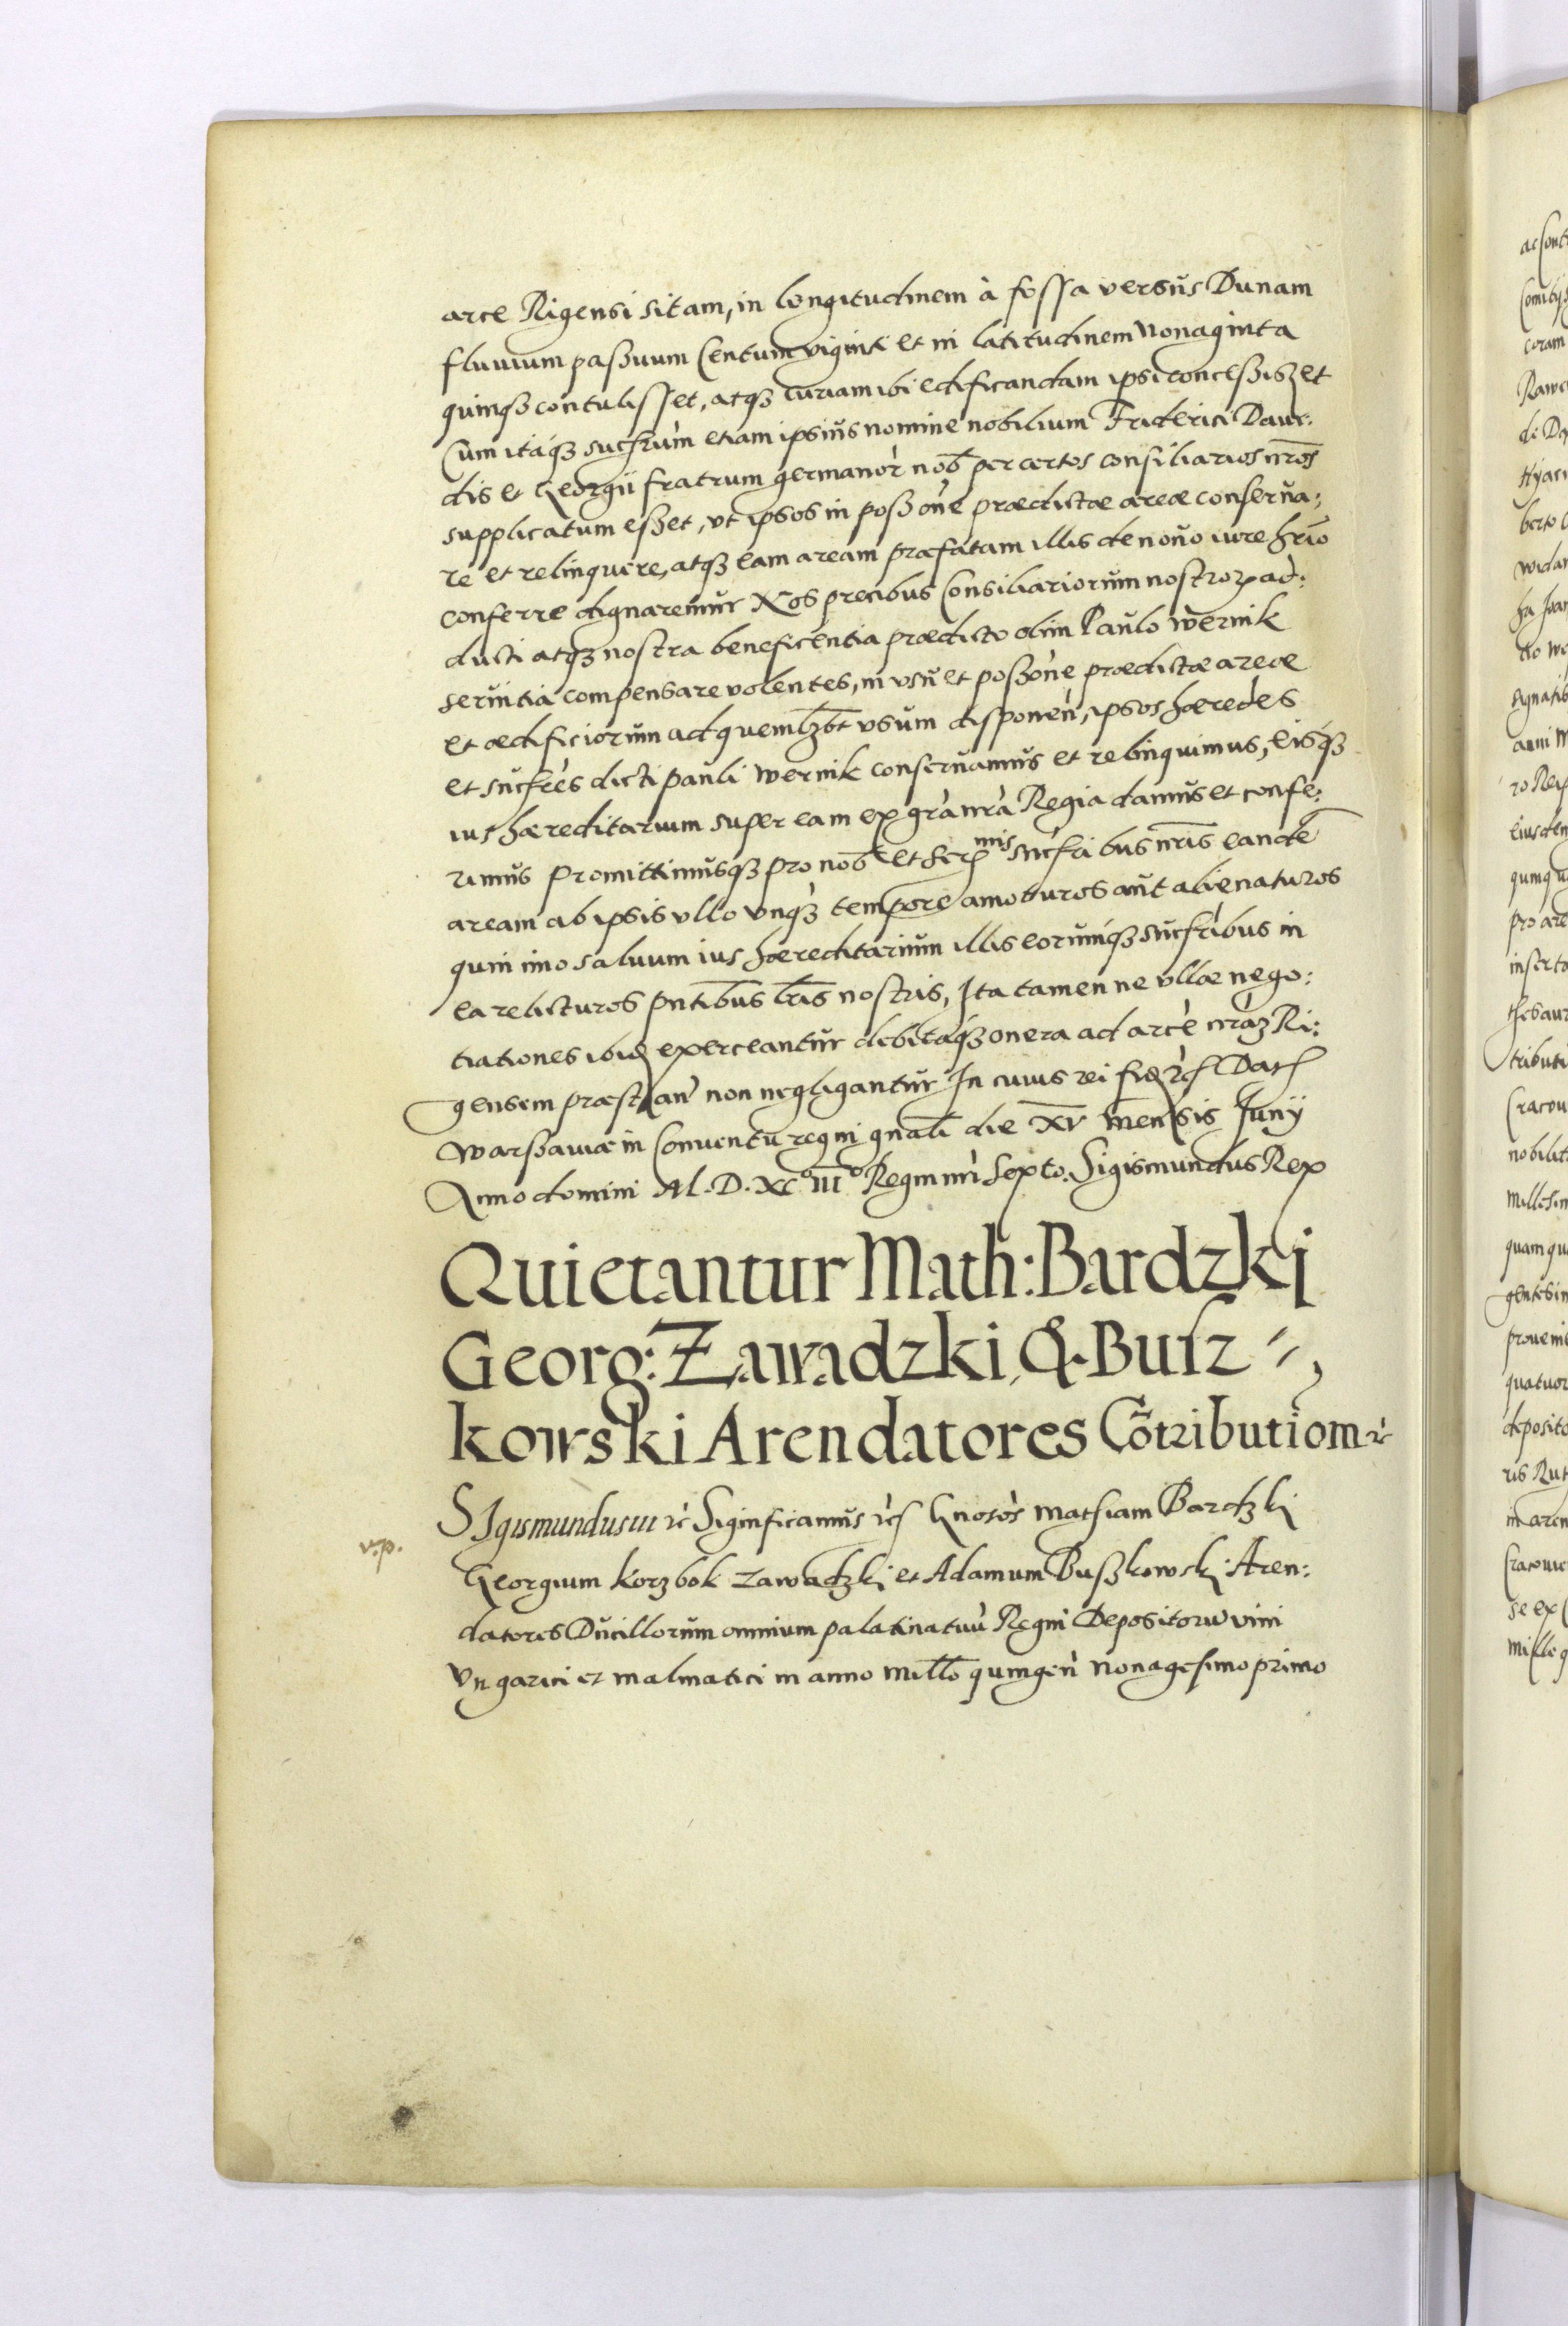 arce Rigensi sitam, in longitudinem à fossa versùs Dunam
fluvium paßuum Centum viginti et in latitudinem nonaginta
quinqȝ contulisset, atqȝ curiam ibi edificandam ipsi conceßißet
Cum itáqȝ suchrùm etiam ipsius nomine nobilium Friderici Davi:
dis et Georgii fratrum germanor̀ nob̄ per certos consiliarios nr̄os
supplicatum eßet, vt ipsos in poßone prædictæ areæ conserva:
re et relinquere, atqȝ eam aream præfatam illis denovo iure hr̄io
conferre dignaremur Nos precibus Consiliariorum nostroꝝ ad:
ducti atqȝ nostra beneficentia prædicto olim Paulo wernik
servitia compensare volentes, in vsu et poßone prædictæ areæ
et ædificiorum ad quemlȝbt vsum disponen̄, ipsos hæredes
et sucfres dicti pauli wernik conservamus et relinquimus, eisqȝ
ius hæreditarium super eam ex grà nrà Regia damus et confe:
rimus promittimusqȝ pro nob̄ et Ser mis sucfribus nr̄is eandē
aream ab ipsis vllo vnqȝ tempore amoturos aut alienaturos
quin imo salvum ius hæreditarium illis eorumqȝ sucfribus in
ea relicturos pntibus lr̄is nostris, Ita tamen ne vllæ nego:
tiationes ibid exerceantur debitaqȝ onera ad arcē nraȝ Ri:
gensem præstan̄ non negligantur In cuius rei fid rc̄ Dat
Warßaviæ in Conventu regni gnali die XV mensis Junij
Anno domini M.D.XC°III° Regni nri Sexto. Sigismundus Rex
Quietantur Math: Bardzkj
Georg: Zawadzki, A. Busz
kowski Arendatores Cōtributiom rc̀
SIgismundus III rc̀ Significamus rc̀ Gnosos Mathiam Bardzkj
v.p.
Georgium Korzbok Zawadzkj et Adamum Bußkowskj Aren:
datores Ducillorum omnium palatinatuù Regni Depositorū vini
Vngarici et malmatici in anno mill̄o quingen̄ nonagesimo primo